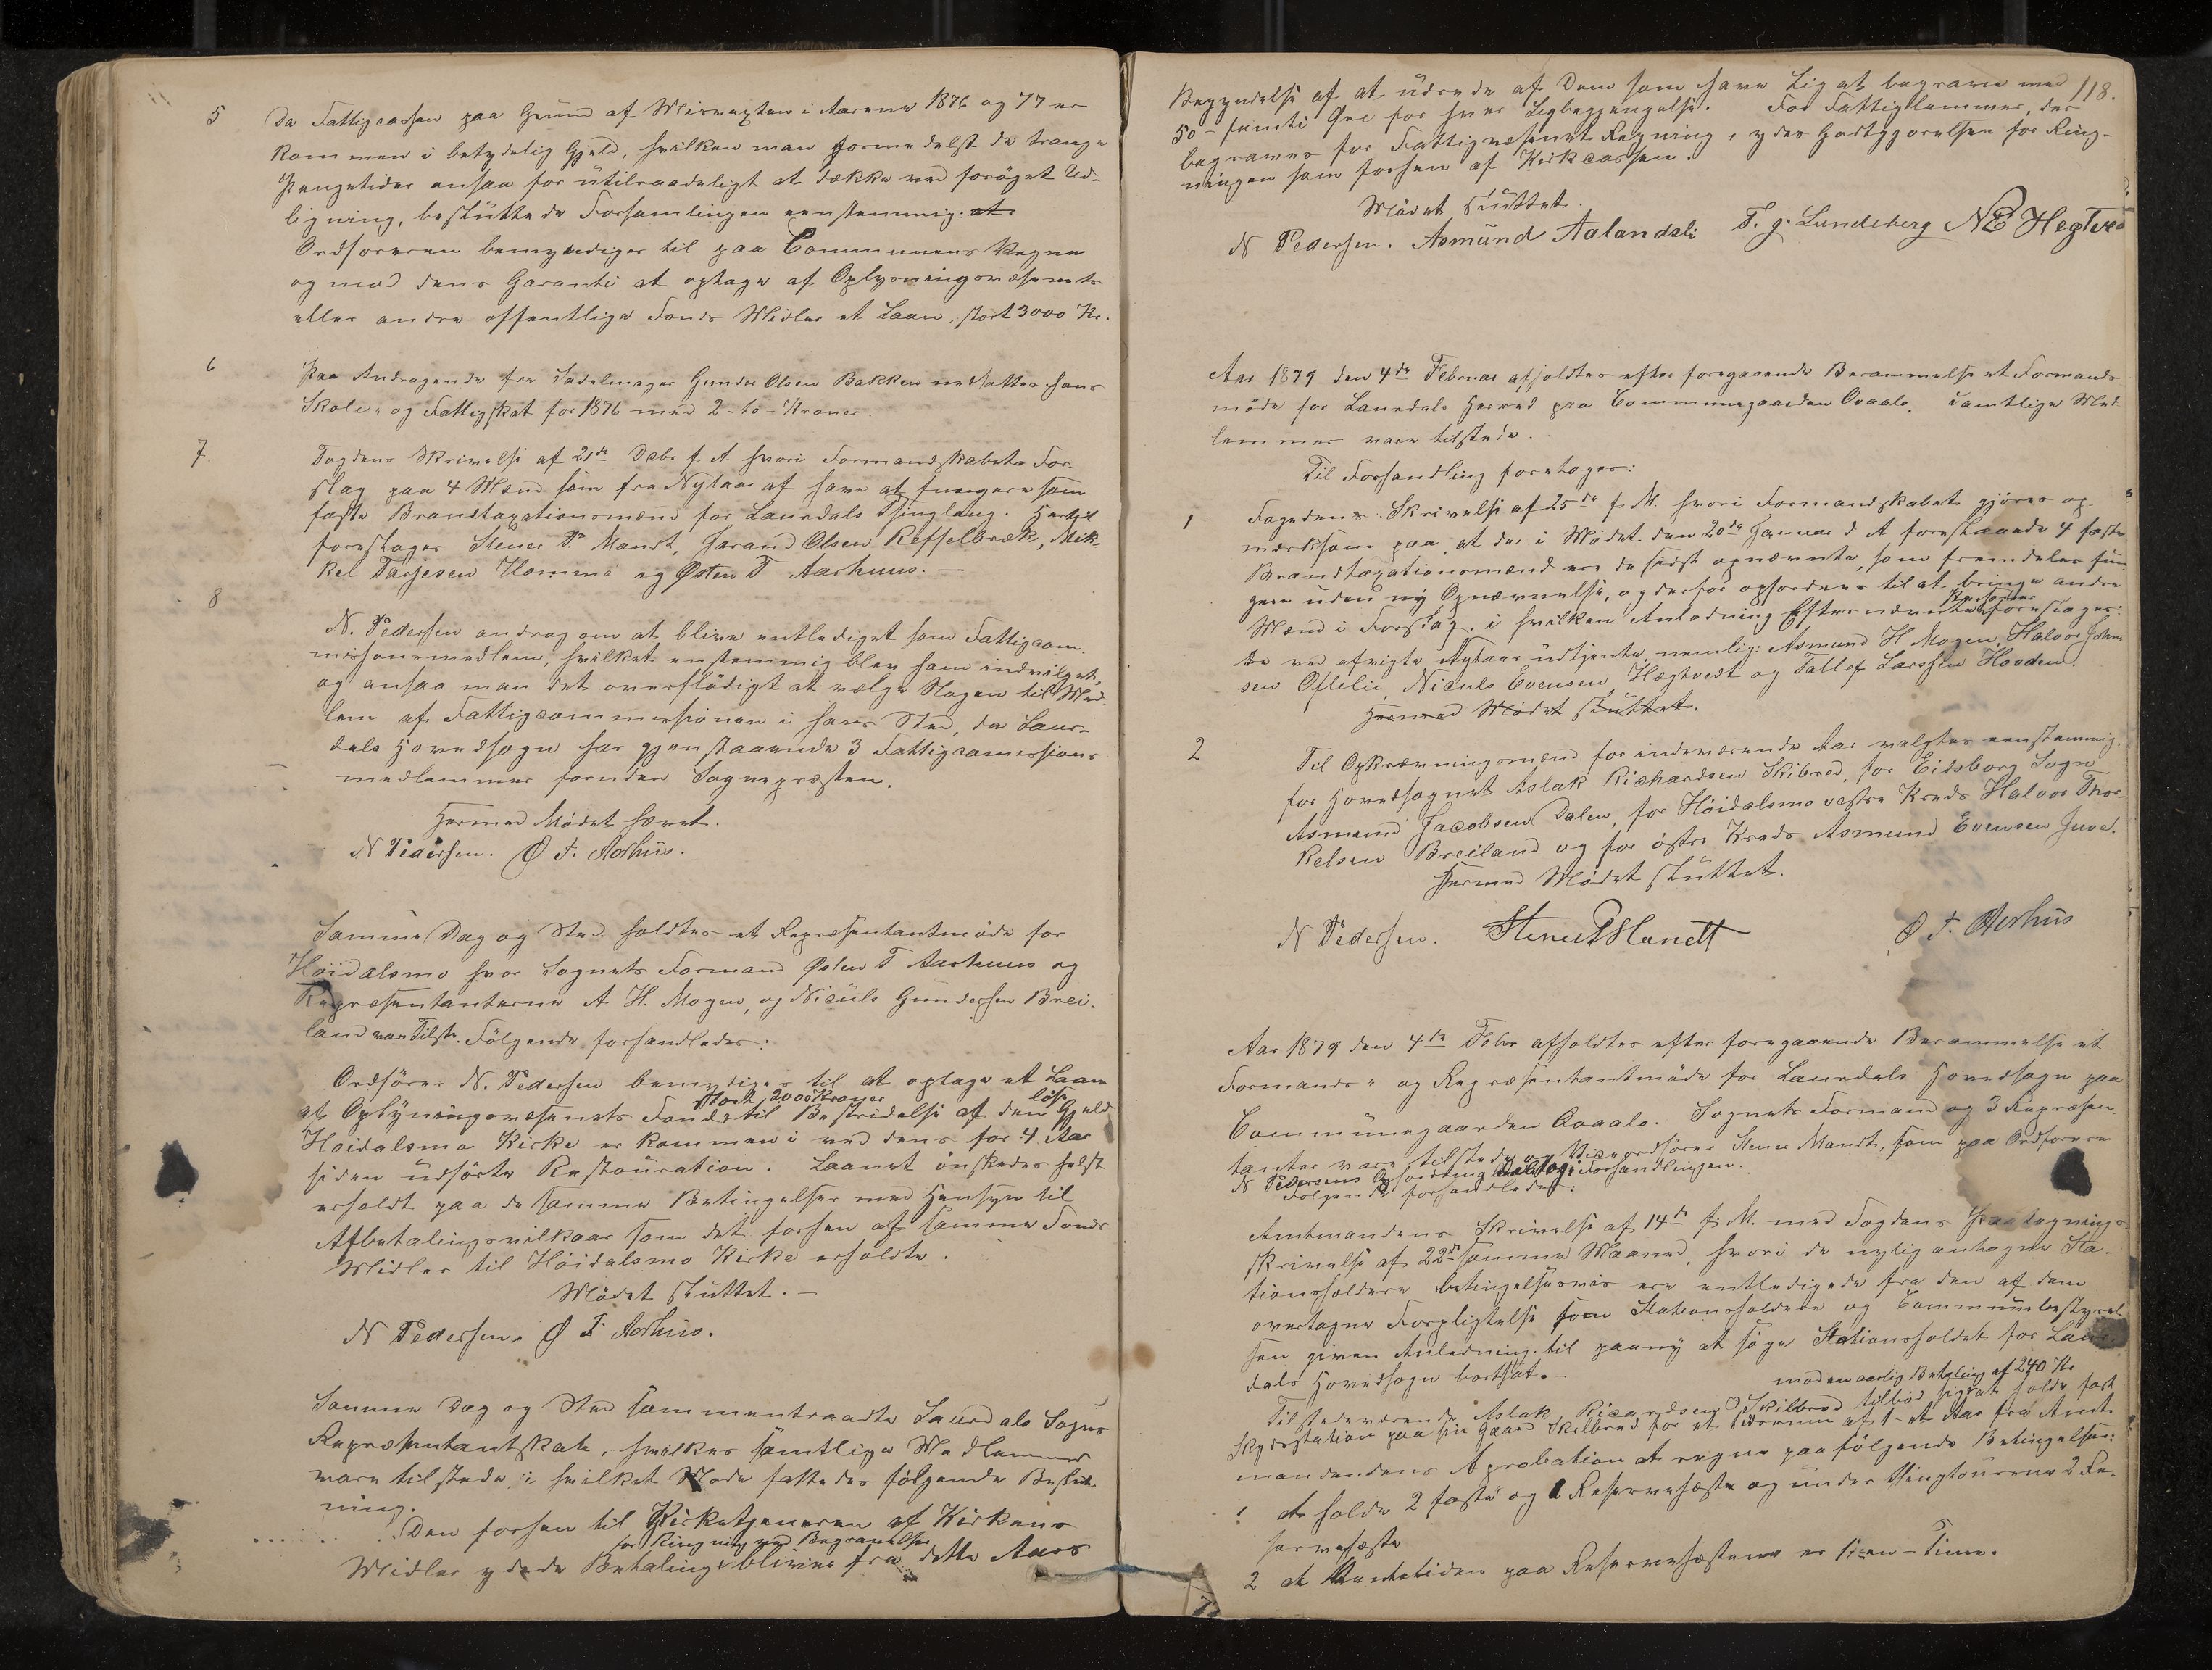 5 Da Fattigcassen paa Grund af Misvæxten i Aarene 1876 og 77 er
kommen i betydelig Gjeld, hvilken man formedelst de trange
Pengetider ansaa for utilraadeligt at dække ved forøget Ud-
ligning, besluttede Forsamlingen eenstemmig: at
Ordføreren bemyndiges til paa Communens Vegne
og mod dens Garanti at optage af Oplysningsvæsenets
eller andre offentlige Fonds Midler et Laan, stort 3000 Kr.
6 Paa Andragende fra Sadelmager Gunder Olsen Bakken nedsattes hans
Skole- og Fattigskat for 1876 med 2-to-Kroner.
7. Fogdens Skrivelse af 21de Debr f. A. hvori Formandskabets For-
slag paa 4 Mænd som fra Nytaar af have at fungere som
faste Brandtaxationsmænd for Laurdals Thinglaug. Hertil
foreslages Stener P. Mandt, Jarand Olsen Reffelbræk, Mik-
kel Tarjesen Homme og Østen T Aarhuus. —
8
N. Pedersen androg om at blive entlediget som Fattigcom-
missionsmedlem, hvilket enstemmig blev ham indvilget,
og ansaa man det overflødigt at vælge Nogen til Med-
lem af Fattigcommissionen i hans Sted, da Laur-
dals Hovedsogn har gjenstaaende 3 Fattigcomissions
medlemmer foruden Sognepræsten.
Hermed Mødet hævet.
N Pedersen. Ø T. Aarhus.
Samme Dag og Sted holdtes et Repræsentantmøde for
Høidalsmo hvor Sognets Formand Østen T Aarhuus og
Repræsentanterne A H. Mogen, og Niculs Gundersen Brei-
land var Tilst. Følgende forhandledes:
Ordfører N. Pedersen bemyndiges til at optage et Laan
stort 2000 Kroner løse
at Oplysningsvesenets Fond til Bestridelse af den Gjeld
Høidalsmo Kirke er kommen i ved dens for 4 Aar
siden udførte Restauration. Laanet ønskedes helst
erholdt paa de samme Betingelser med Hensyn til
Afbetalingsvilkaar som det forhen af samme Fonds
Midler til Høidalsmo Kirke erholdte.
Mødet sluttet. —
N Pedersen. Ø T Aarhus.
Samme Dag og Sted sammentraadte Laurdals Sogns
Repræsentantskab, hvilkes samtlige Medlemmer
vare tilstede, i hvilket Møde fattedes følgende Beslut-
ning.
Den forhen til Kirketjeneren af Kirkens
for Ringning ved Begravelser
Midler ydede Betaling bliver fra dette Aars
118.
Begyndelse af at udrede af Dem som have Lig at begrave med
50 - femti Øre for hver Ligbegjengelse. For Fattiglemmer, der
begraves for Fattigvæsenets Regning, ydes Godtgjørelsen for Ring-
ningen som forhen af Kirkecassen.
Mødet sluttet.
N Pedersen. Asmund Aalandsli T. g. Lundeberg NE Hegtved
Aar 1879 den 4de Februar afholdtes efter foregaaende Berammelse et Formands
møde for Laurdals Herred paa Communegaarden Qvaale. Samtlige Med-
lemmer vare tilstede.
Til Forhandling foretoges:
1 Fogedens Skrivelse af 25de f. M. hvori Formandskabet gjøres op-
mærksom paa, at de i Mødet den 20de Januar d A foreslaaede 4 faste
Brandtaxationsmænd ere de sidst opnævnte, som fremdeles fun-
gere uden ny Opnævnelse, og derfor opfordres til at bringe andre
Personer
Mænd i Forslag, i hvilken Anledning Efternævnte foreslages:
De ved afvigte Nytaar udtjente, nemlig: Asmund H Mogen, Halvor John-
sen Oflelie, Niculs Evensen Hægtvedt og Tallef Larssen Hovden.
Hermed Mødet sluttet.
2 Til Opkrævningsmænd for indeværende Aar valgtes eenstemmig.
for Hovedsognet Aslak Richardsen Skibred, for Eidsborg Sogn
Asmund Jacobsen Dalen, for Høidalsmo vestre Kreds Halvor Thor-
kelsen Breiland og for østre Kreds Asmund Evensen Juve.
Hermed Mødet sluttet.
N Pedersen. Stener P Mandt Ø T. Aarhus
Aar 1879 den 4de Febr afholdtes efter foregaaende Berammelse et
Formands- og Repræsentantmøde for Laurdals Hovedsogn paa
Communegaarden Qvaale. Sognets Formand og 3 Repræsen-
tanter vare tilstede og Viceordfører Stener Mandt, som paa Ordfører
N Pedersens Opfordring deltog i Forhandlingen.
Følgende forhandledes:
Amtmandens Skrivelse af 14de f. M. med Fogdens Paategnings
skrivelse af 22de samme Maaned, hvori de nylig antagne Sta-
tionsholdere betingelsesvis ere entledigede fra den af dem
overtagne Forpligtelse som Stationsholdere og Communebestyrel-
sen given Anledning til paany at søge Stationsholdet for Laur-
dals Hovedsogn bortsat. —
mod en aarlig Betaling af 240 Kr
Tilstedeværende Aslak Ricardsen Skilbred tilbød sig at holde fast
Skydsstation paa sin Gaard Skilbred for et Tidsrum af 1-et Aar fra Amt-
mandens Aprobation at regne paa følgende Betingelser:
1 At holde 2 faste og 1 Reservehæste og under Thingtourene 2 Re-
servehæste
2 At Ventetiden paa Reservehæstene er 1-een-Time.